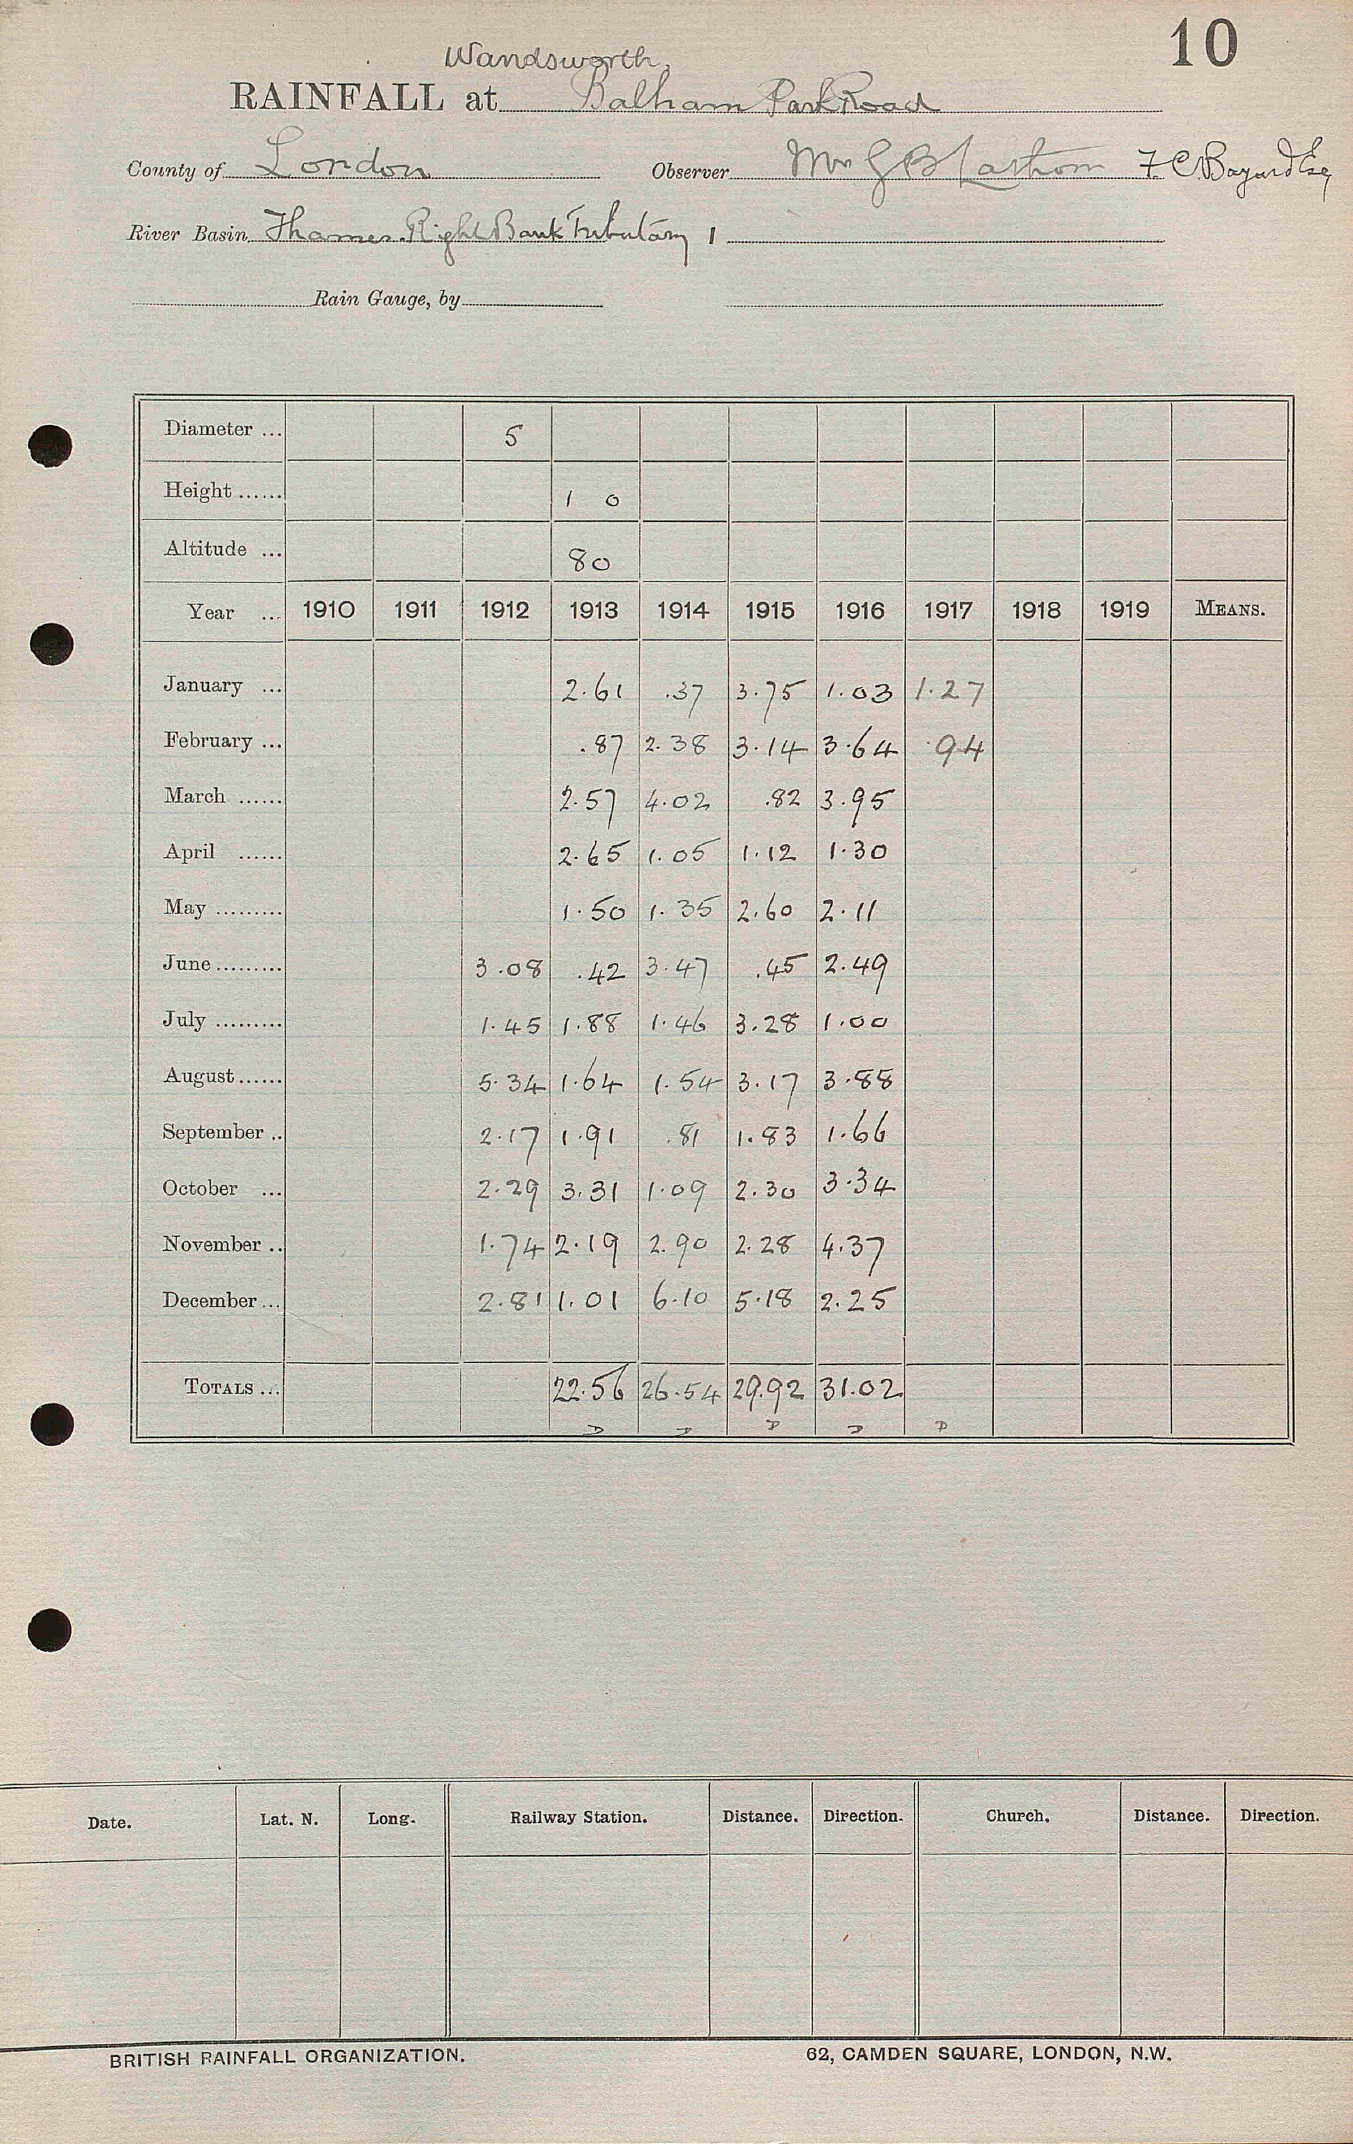 10
Wandsworth,
RAINFALL at Balham Park Road
County of London Observer Mr G B F. C. Bayard Esq
River Basin Thames Right Bank Tributary 1
Rain Gauge, by
Diameter ... 5
Height ...... 1 0
Altitude ... 80
Year ... 1910 1911 1912 1913 1914 1915 1916 1917 1918 1919 MEANS.
January ... 2.61 .37 3.75 1.03 1.27
February ... .87 2.38 3.14 3.64 .94
March ...... 2.57 4.02 .82 3.95
April ...... 2.65 1.05 1.12 1.30
May ......... 1.50 1.35 2.60 2.11
June ......... 3.08 .42 3.47 .45 2.49
July ......... 1.45 1.88 1.46 3.28 1.00
August ...... 5.34 1.64 1.54 3.17 3.88
September .. 2.17 1.91 .81 1.83 1.66
October ... 2.29 3.31 1.09 2.30 3.34
November .. 1.74 2.19 2.90 2.28 4.37
December ... 2.81 1.01 6.10 5.18 2.25
TOTALS ... 22.56 26.54 29.92 31.02
Date. Lat. N. Long. Railway Station. Distance. Direction. Church. Distance. Direction.
BRITISH RAINFALL ORGANIZATION. 62, CAMDEN SQUARE, LONDON, N.W.